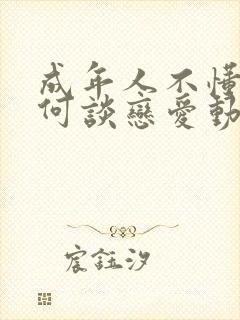 成年人不懂
何談戀愛動
宸鈺汐